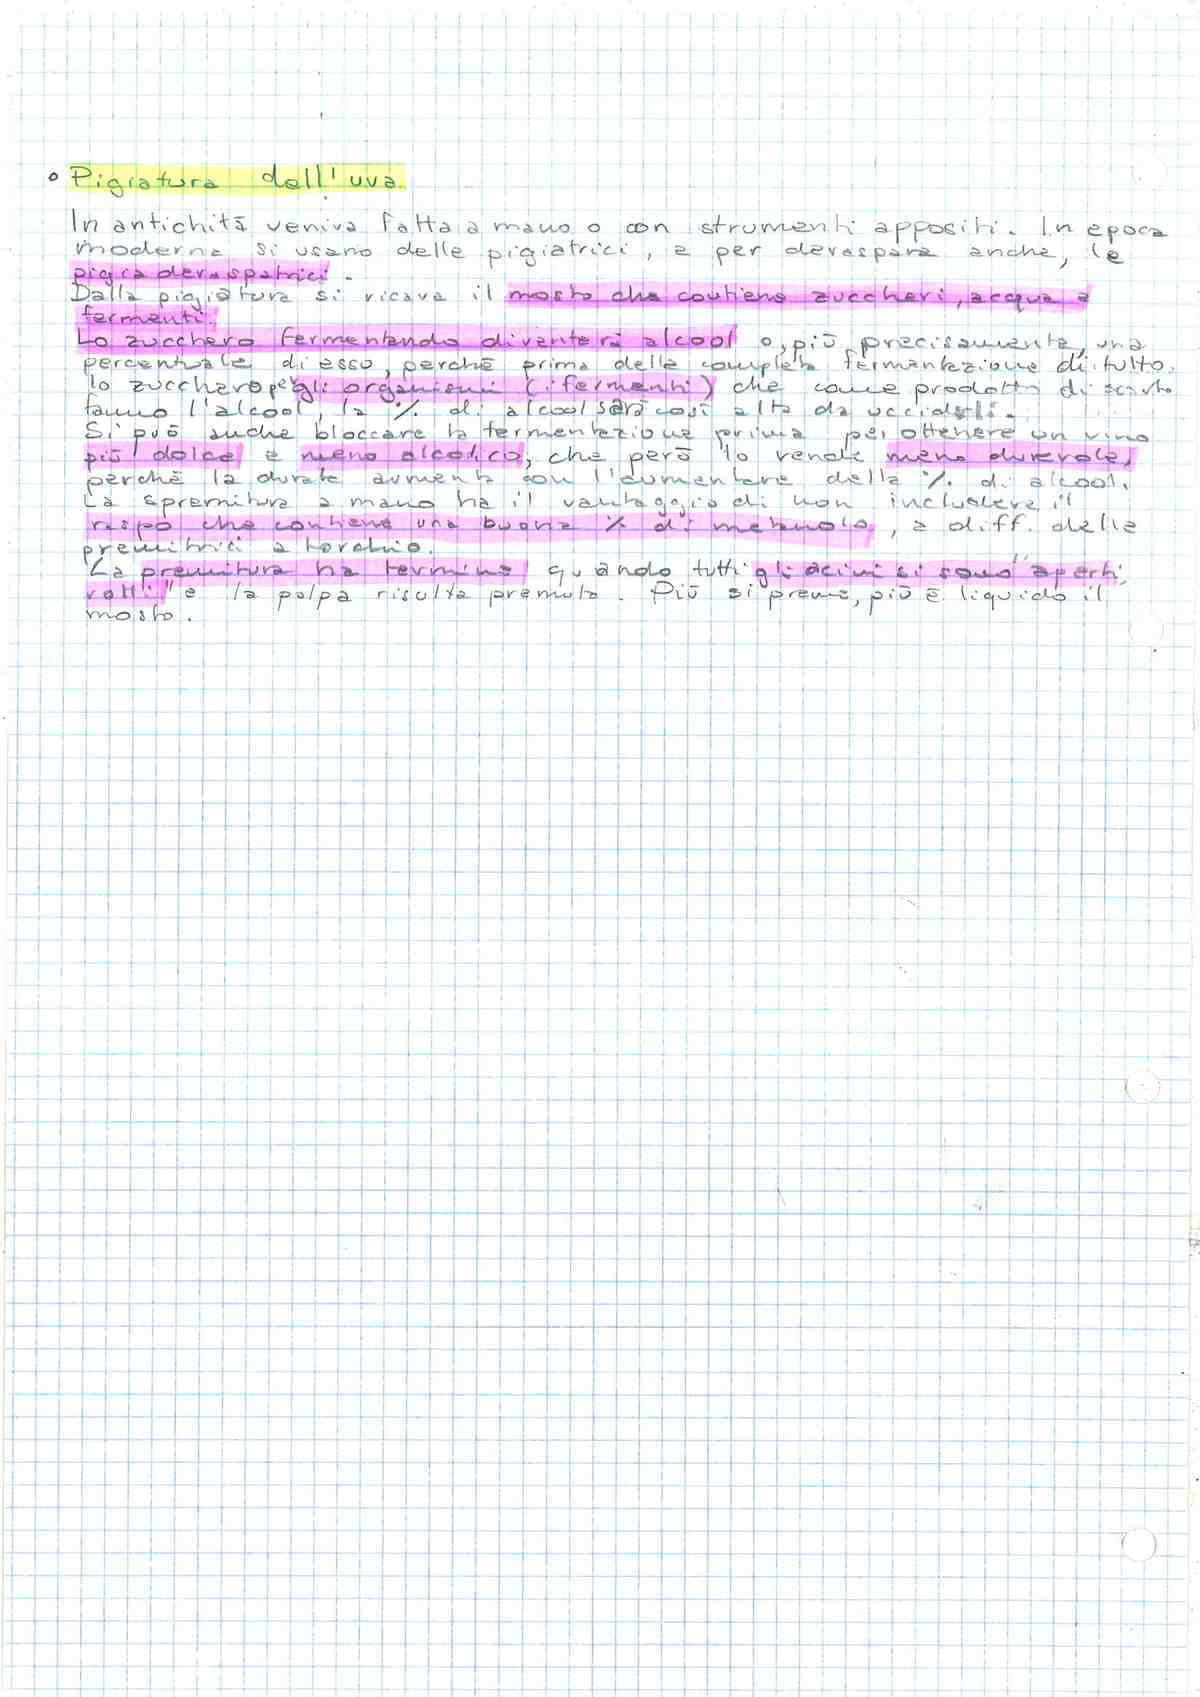 • Pigiatura dell'uva
In antichità veniva fatta a mano o con strumenti appositi. In epoca
moderna si usano delle pigiatrici, e per deraspare anche, le
pigia deraspatrici.
Dalla pigiatura si ricava il mosto che contiene zuccheri, acqua e
fermenti.
Lo zucchero fermentando diventerà alcool o, più precisamente, una
percentuale di esso, perché prima della completa fermentazione di tutto
lo zucchero per gli organismi (i fermenti) che come prodotto di scarto
fanno l'alcool, la % di alcool sarà così alta da ucciderli.
Si può anche bloccare la fermentazione prima per ottenere un vino
più dolce e meno alcolico, che però lo rende meno durevole,
perché la durata aumenta con l'aumentare della % di alcool.
La spremitura a mano ha il vantaggio di non includere il
raspo che contiene una buona % di metanolo, a diff. delle
premitrici a torchio.
La premitura ha termine quando tutti gli acini si sono "aperti,
rotti" e la polpa risulta premuta. Più si preme, più è liquido il
mosto.